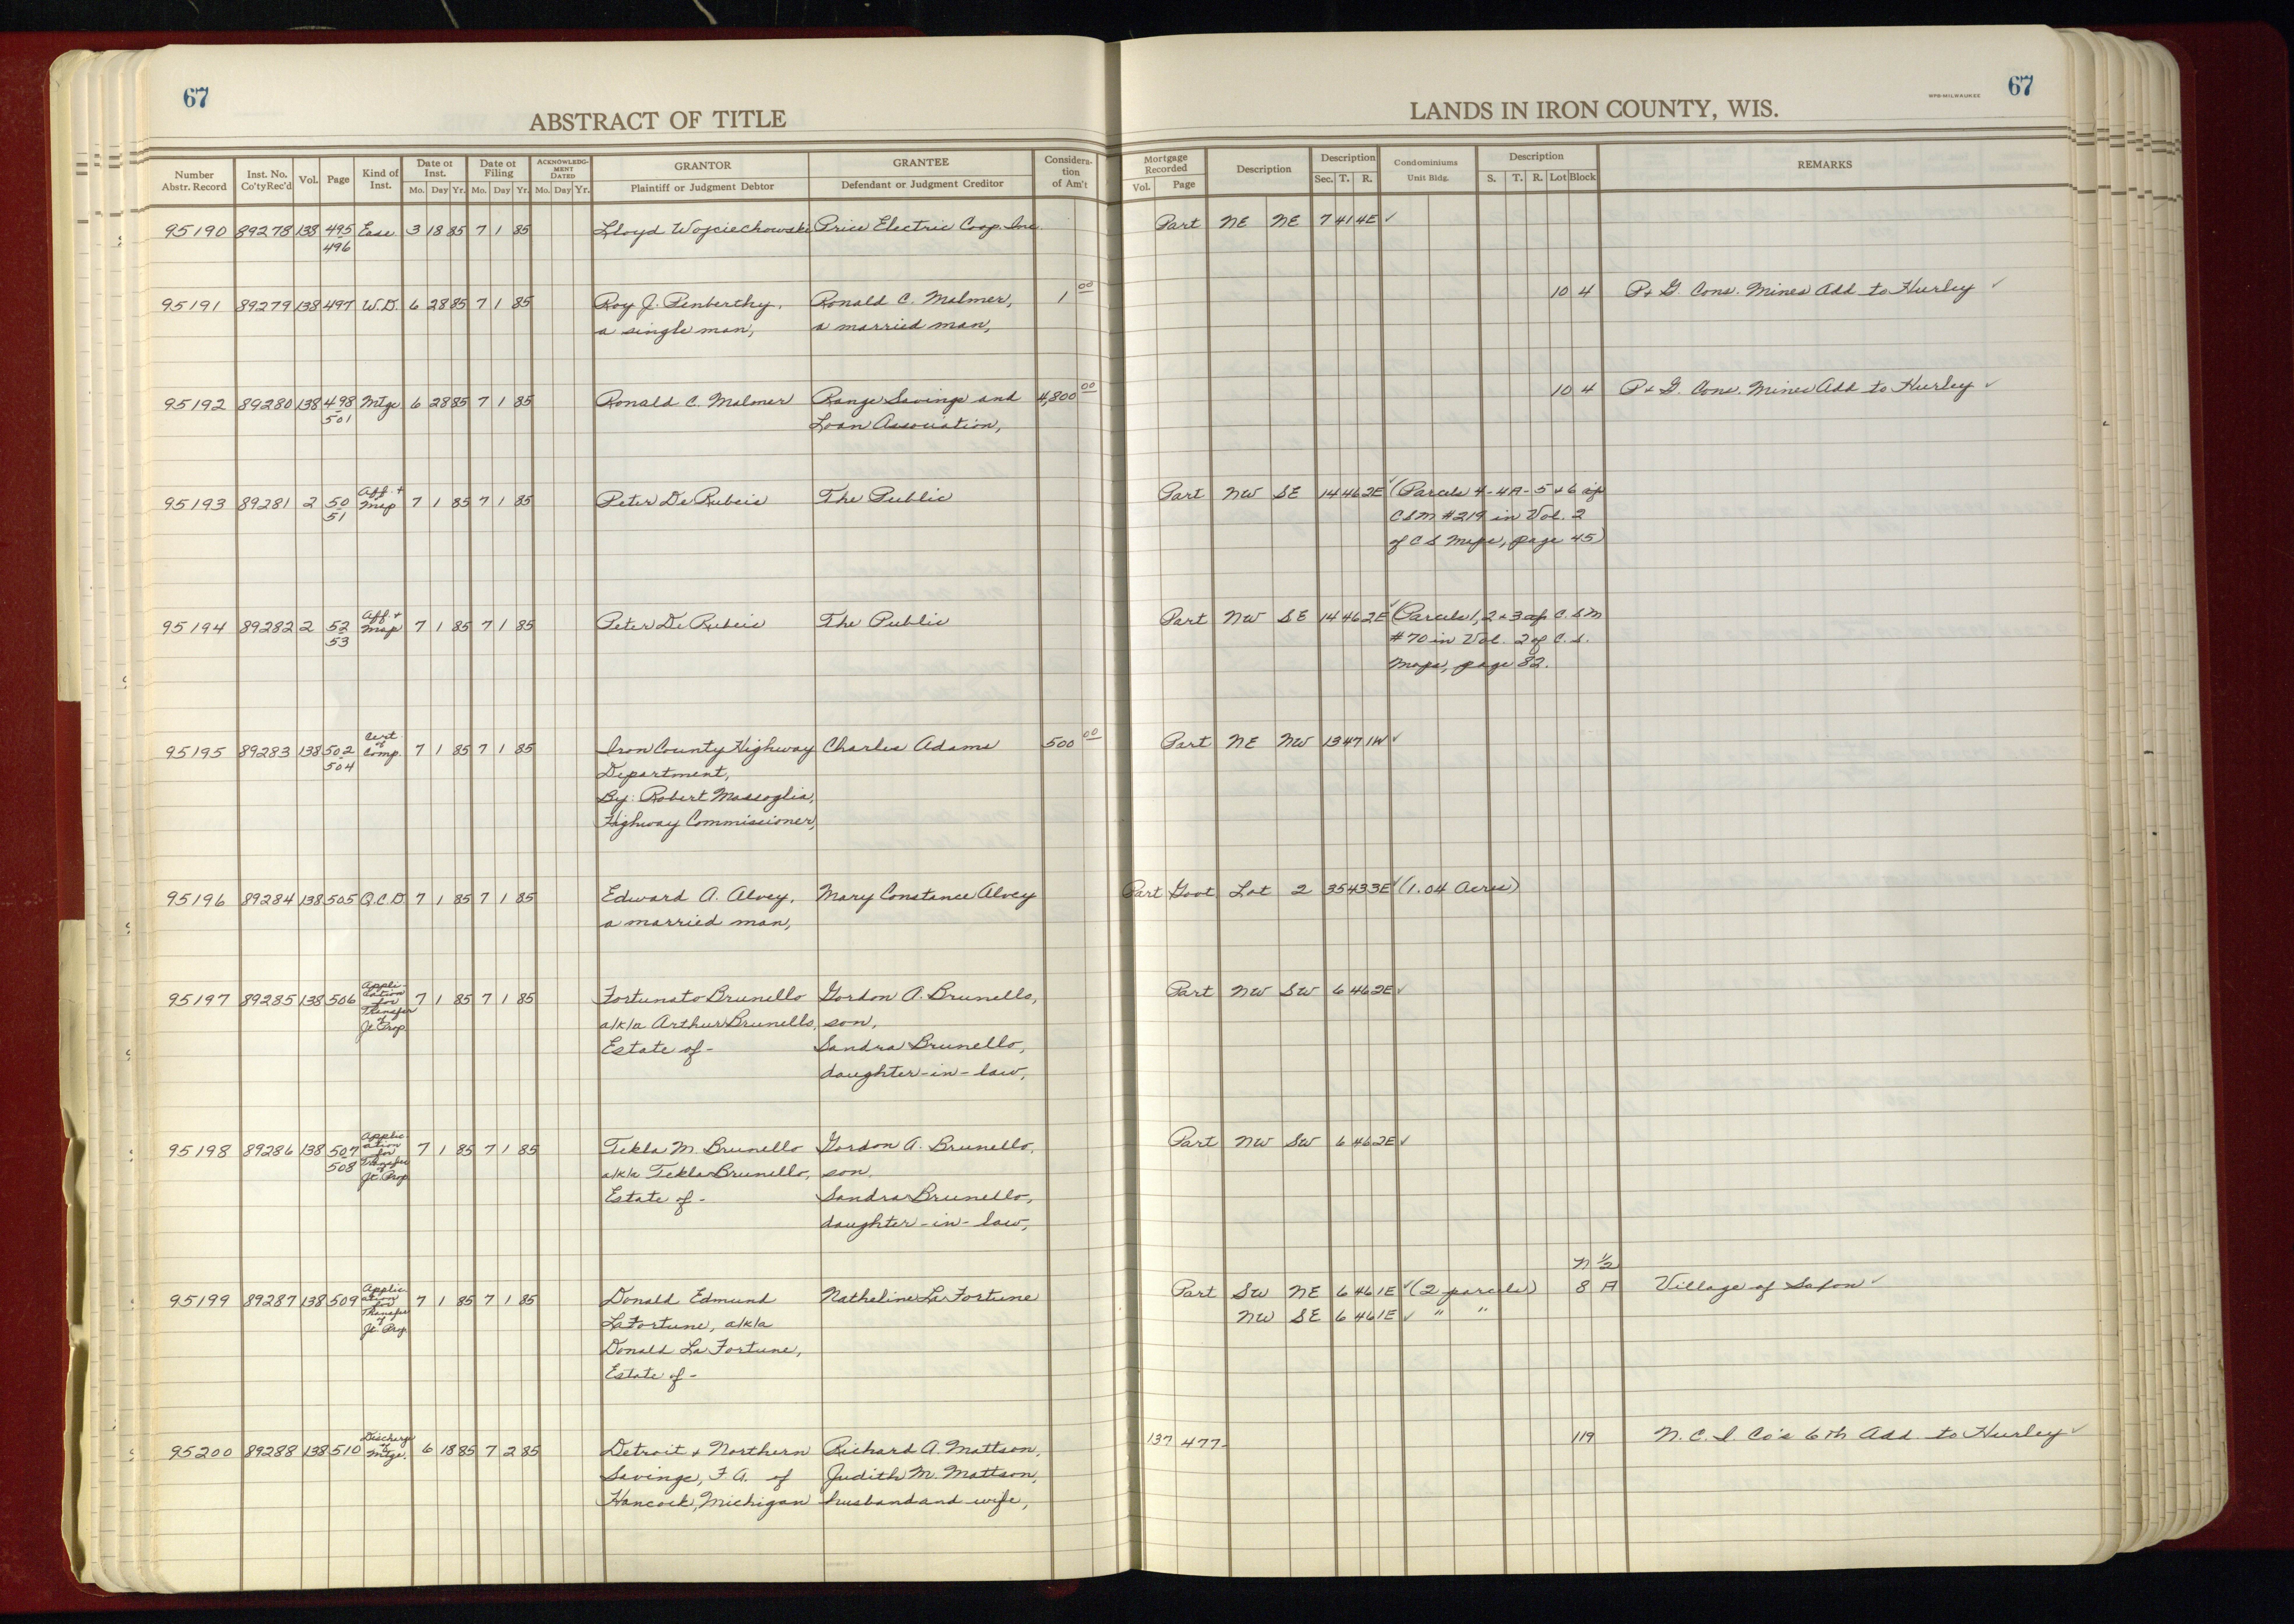 67
ABSTRACT OF TITLE
Number Abstr. Record
Inst. No. Co'ty Rec'd
Vol.
Page
Kind of Inst.
Date of Inst.
Mo. Day Yr.
Date of Filing
Mo. Day Yr.
ACKNOWLEDGMENT DATED
Mo. Day Yr.
GRANTOR
Plaintiff or Judgment Debtor
GRANTEE
Defendant or Judgment Creditor
Consideration of Am't
67
WPB-MILWAUKEE
LANDS IN IRON COUNTY, WIS.
Mortgage Recorded
Vol. Page
Description
Description
Sec. T. R.
Condominiums
Unit Bldg.
Description
S. T. R. Lot Block
REMARKS
95190 89278 138 495 Ease 3 18 85 7 1 85 Lloyd Wojciechowski Price Electric Coop. Inc. Part NE NE 7 41 4E ✓
496
95191 89279 138 497 W.D. 6 28 85 7 1 85 Roy J. Penberthy, Ronald C. Malmer, 1 00 10 4 P. & G. Cons. Mines Add to Hurley ✓
a single man, a married man,
95192 89280 138 498 Mtge 6 28 85 7 1 85 Ronald C. Malmer Range Savings and 4,800 00 10 4 P. & G. Cons. Mines Add to Hurley ✓
501 Loan Association,
95193 89281 2 50 Aff. + Map 7 1 85 7 1 85 Peter De Rubeis The Public Part NW SE 14 46 2E ✓ (Parcels 4-4A-5 & 6 of
51 CSM #219 in Vol. 2
of C S Maps, page 45)
95194 89282 2 52 Aff. + Map 7 1 85 7 1 85 Peter De Rubeis The Public Part NW SE 14 46 2E ✓ (Parcels 1, 2 & 3 of C.S.M
53 #70 in Vol. 2 of C. S.
Maps, page 82.
95195 89283 138 502 Cert. of Comp. 7 1 85 7 1 85 Iron County Highway Charles Adams 500 00 Part NE NW 13 47 1W ✓
504 Department,
By: Robert Massoglia,
Highway Commissioner,
95196 89284 138 505 Q.C.D. 7 1 85 7 1 85 Edward A. Alvey, Mary Constance Alvey Part Govt. Lot 2 35 43 3E ✓ (1.04 Acres)
a married man,
95197 89285 138 506 Application for Transfer of Jt. Prop 7 1 85 7 1 85 Fortunato Brunello Gordon A. Brunello, Part NW SW 6 46 2E ✓
a/k/a Arthur Brunello, son,
Estate of - Sandra Brunello,
daughter-in-law,
95198 89286 138 507 Application for Transfer of Jt. Prop 7 1 85 7 1 85 Tekla M. Brunello Gordon A. Brunello, Part NW SW 6 46 2E ✓
508 a/k/a Tekla Brunello, son,
Estate of - Sandra Brunello,
daughter-in-law,
N 1/2
95199 89287 138 509 Application for Transfer of Jt. Prop 7 1 85 7 1 85 Donald Edmund Natheline La Fortune Part SW NE 6 46 1E ✓ (2 parcels) 8 A Village of Saxon ✓
LaFortune, a/k/a NW SE 6 46 1E ✓ " "
Donald La Fortune,
Estate of -
95200 89288 138 510 Discharge of Mtge. 6 18 85 7 2 85 Detroit & Northern Richard A. Mattson, 137 477 119 N. C. I. Co's 6th Add. to Hurley ✓
Savings, F.A. of Judith M. Mattson,
Hancock, Michigan husband and wife,